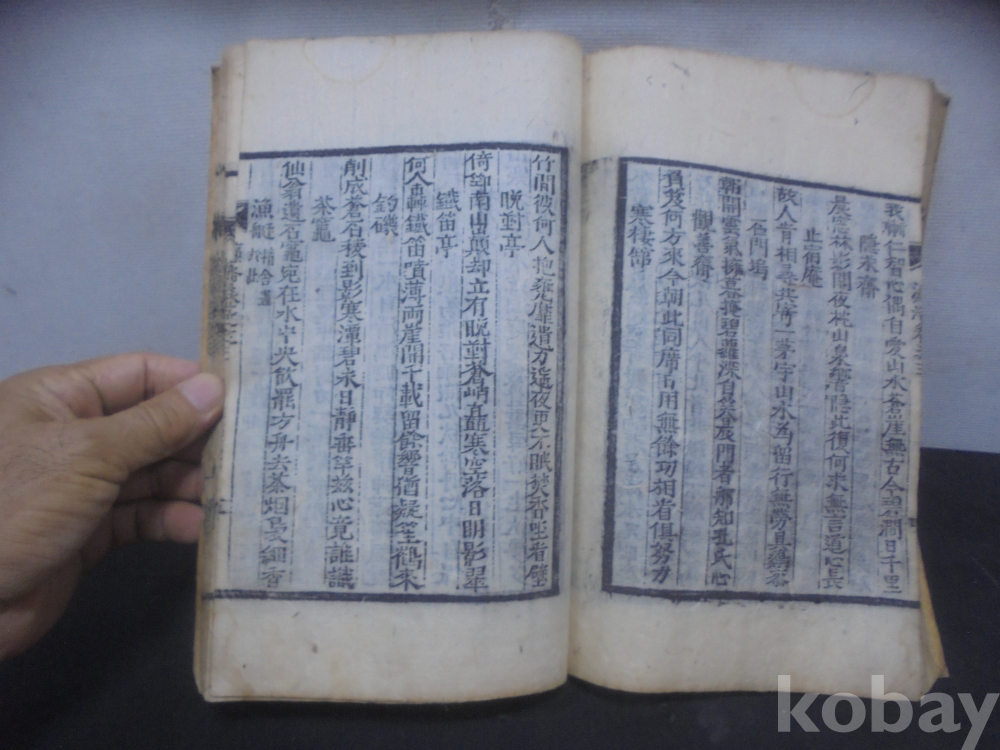 我慚仁智心偶自愛山水蒼崖無古今碧澗日千里
隱求齋
晨窓林影開夜枕山泉響隱此復何求無言道心長
止宿庵
故人肯相尋共寄一茅宇山水為留行無勞具鷄黍
石門塢
朝開雲氣擁暮掩碧蘿深自晨門者那知孔氏心
觀善齋
負笈何方來今朝此同席日用無餘功相看俱努力
寒棲館
竹間彼何人抱甕靡遺力遥夜更不眠焚香坐看壁
晚對亭
倚筇南山巔却立有晚對蒼峭直寒空落日明影翠
鐵笛亭
何人轟鐵笛噴薄兩崖開千載留餘響猶疑笙鶴來
釣磯
削成蒼石稜到影寒潭碧永日靜垂竿玆心竟誰識
茶竈
仙翁遺石竈宛在水中央飲罷方舟去茶烟裊細香
漁艇
kobay